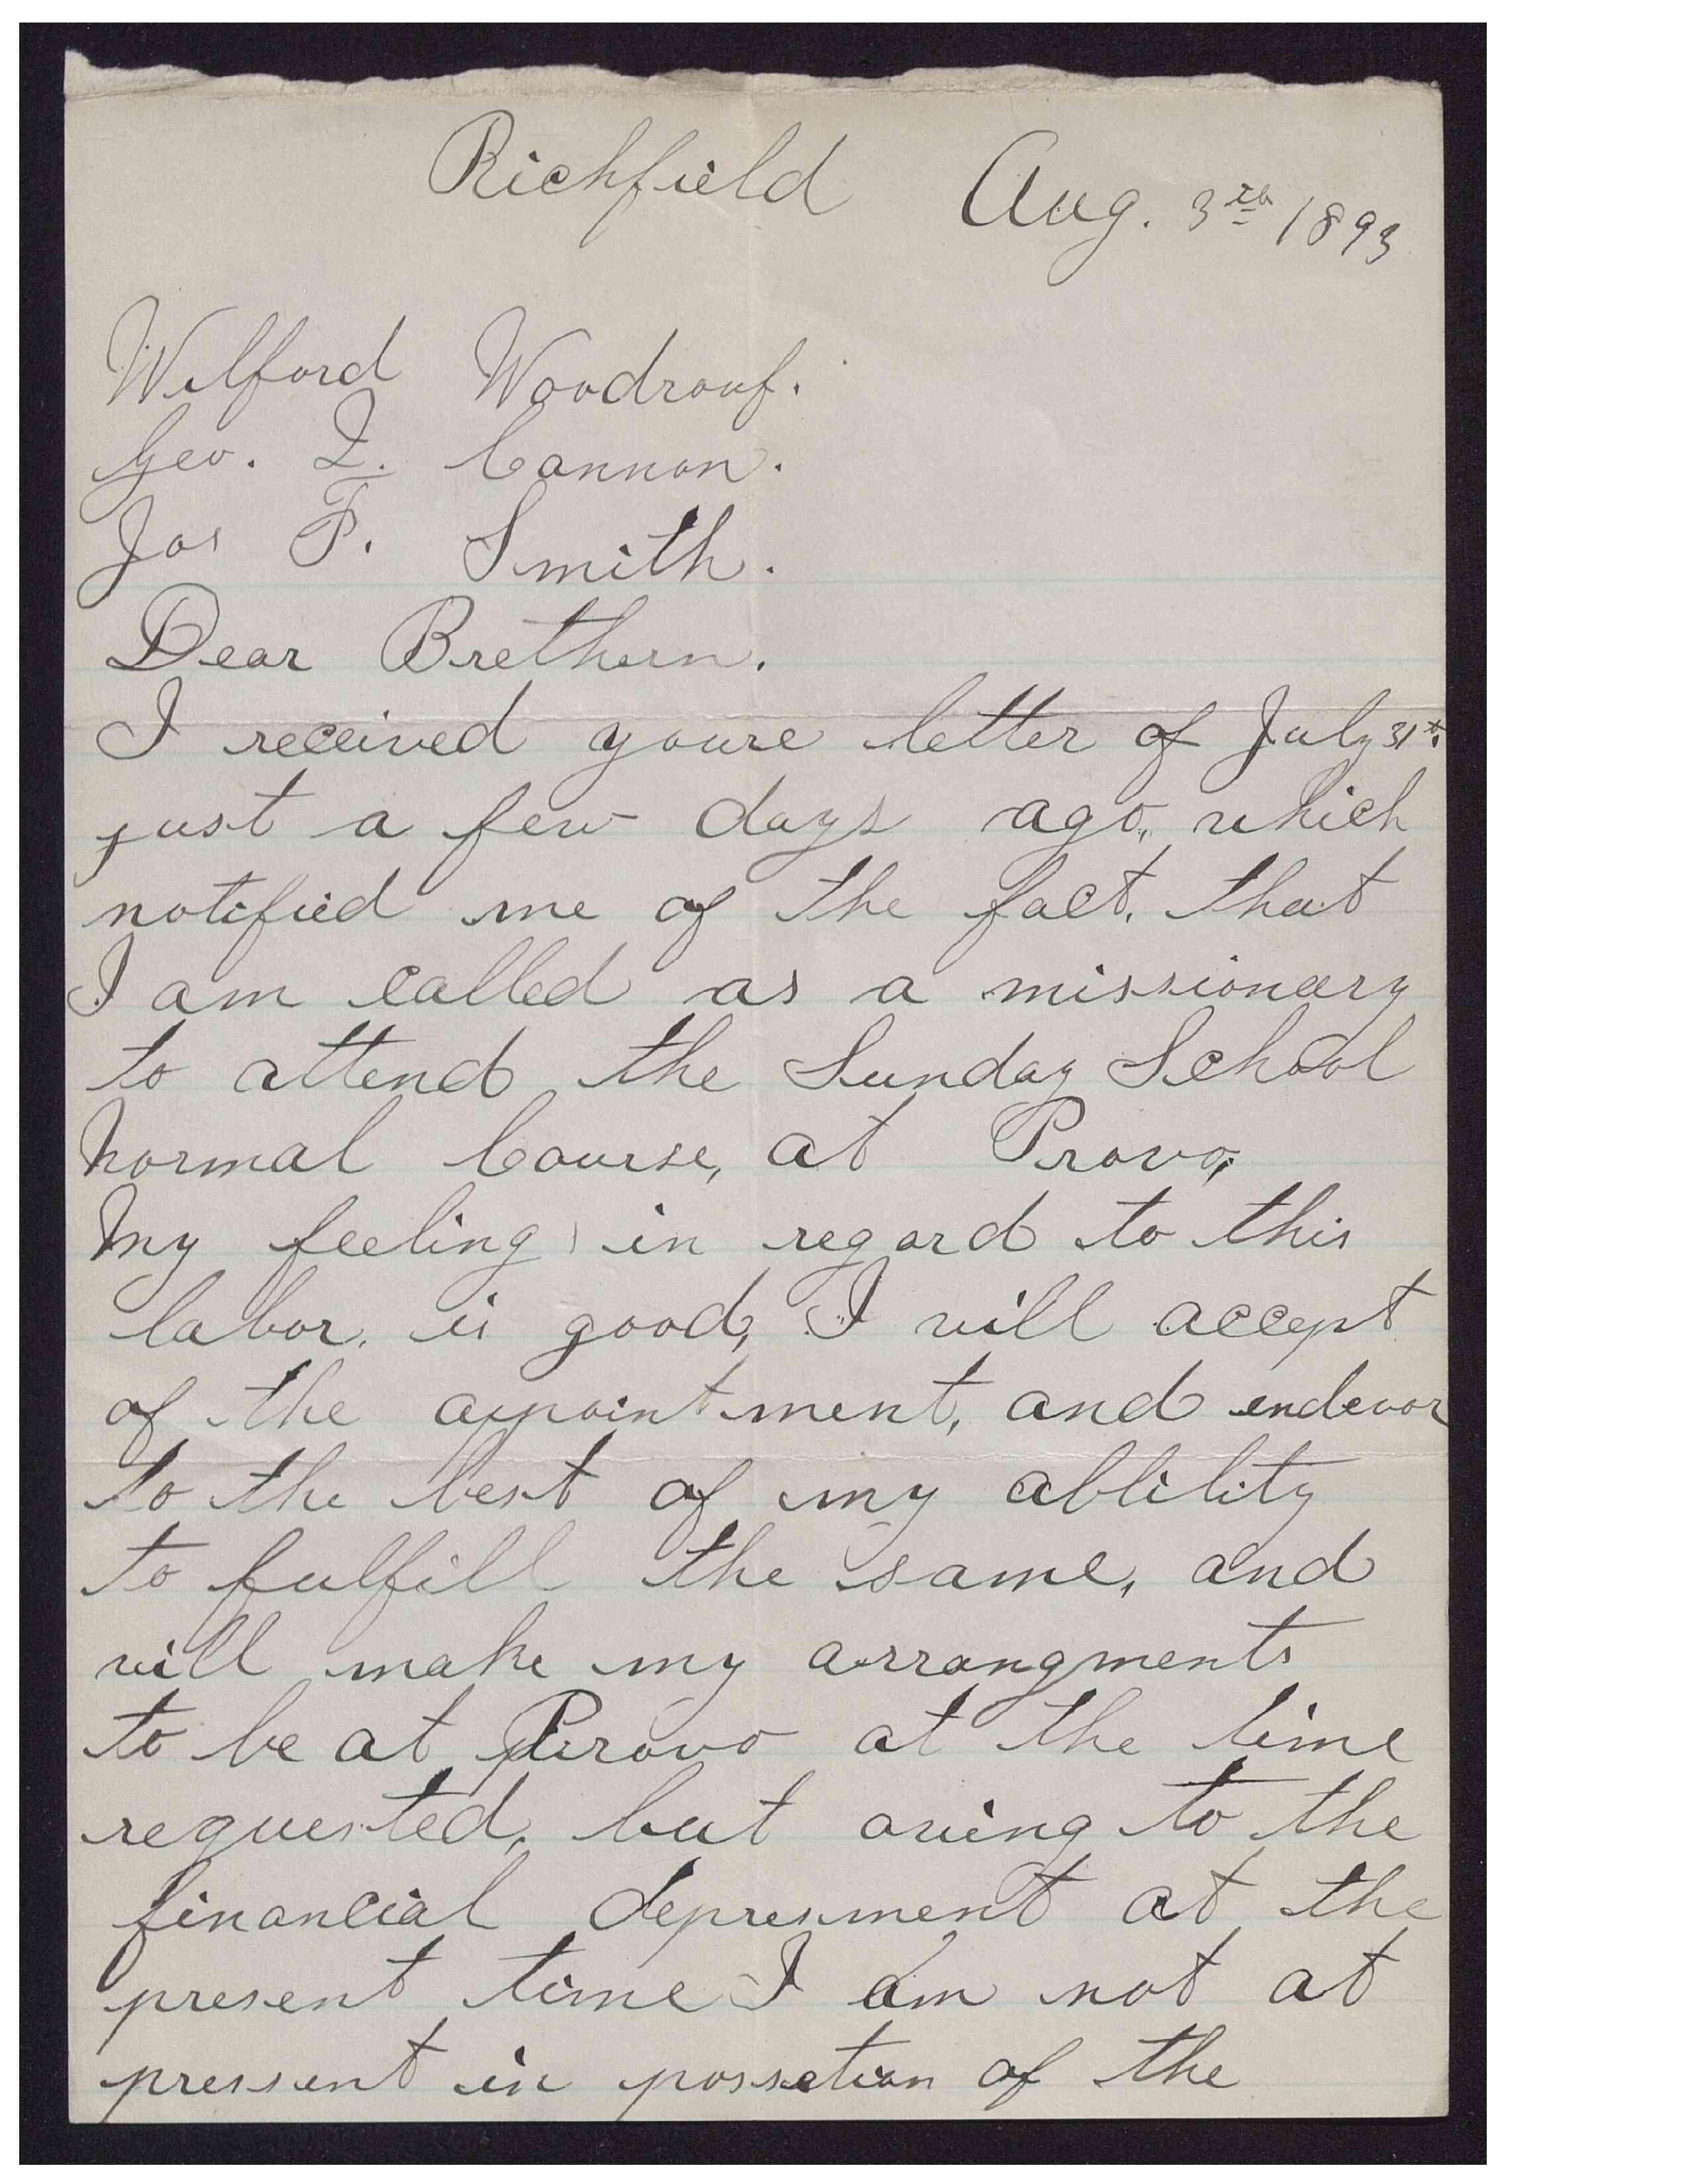 Richfield Aug. 3rd 1893
Wilford Woodrouf.
Geo. Q. Cannon.
Jos F. Smith.
Dear Brethern.
I received youre letter of July 31st.
just a few days ago, which
notified me of the fact. that
I am called as a missionary
to attend the Sunday School
Normal Course, at Provo,
My feeling in regard to this
labor. is good, I will accept
of the apointment, and endevor
to the best of my ablility
to fulfill the same, and
will make my arrangments
to be at Provo at the time
requested, but owing to the
financial depressment at the
present time I am not at
pressent in possetion of the